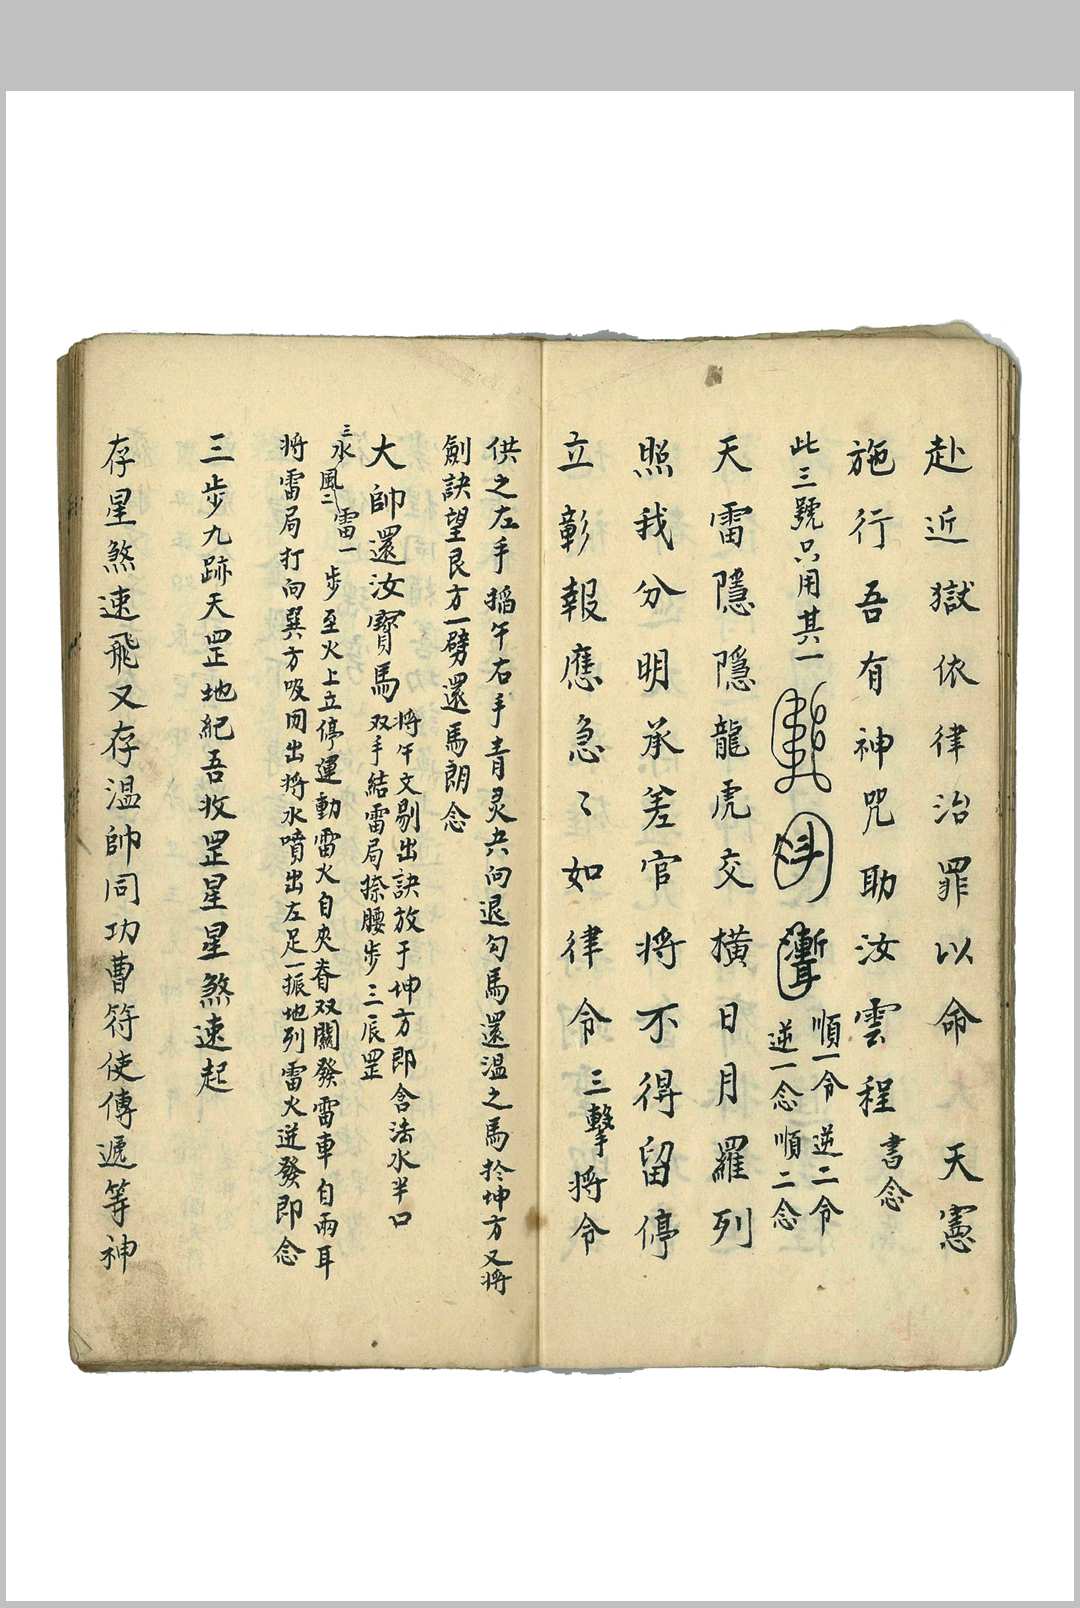 赴近獄依律治罪以命　天憲
施行吾有神咒助汝雲程書念
此三號只用其一
順一令逆二令
逆一念順二念
天雷隱隱龍虎交橫日月羅列
照我分明承差官将不得留停
立彰報應急〻如律令三擊将令
供之左手搯午右手青灵夬向退勾馬還溫之馬扵坤方又将
劍訣望艮方一劈還馬朗念
大帥還汝寶馬
将午文剔出訣放于坤方即含法水半口
双手結雷局捺腰步三辰罡
三水風二雷一步至火上立停運動雷火自夾脊双關發雷車自兩耳
将雷局打向巽方吸囘出将水噴出左足一振地列雷火迸發即念
三步九跡天罡地紀吾收罡星星煞速起
存星煞速飛又存溫帥同功曹符使傳遞等神